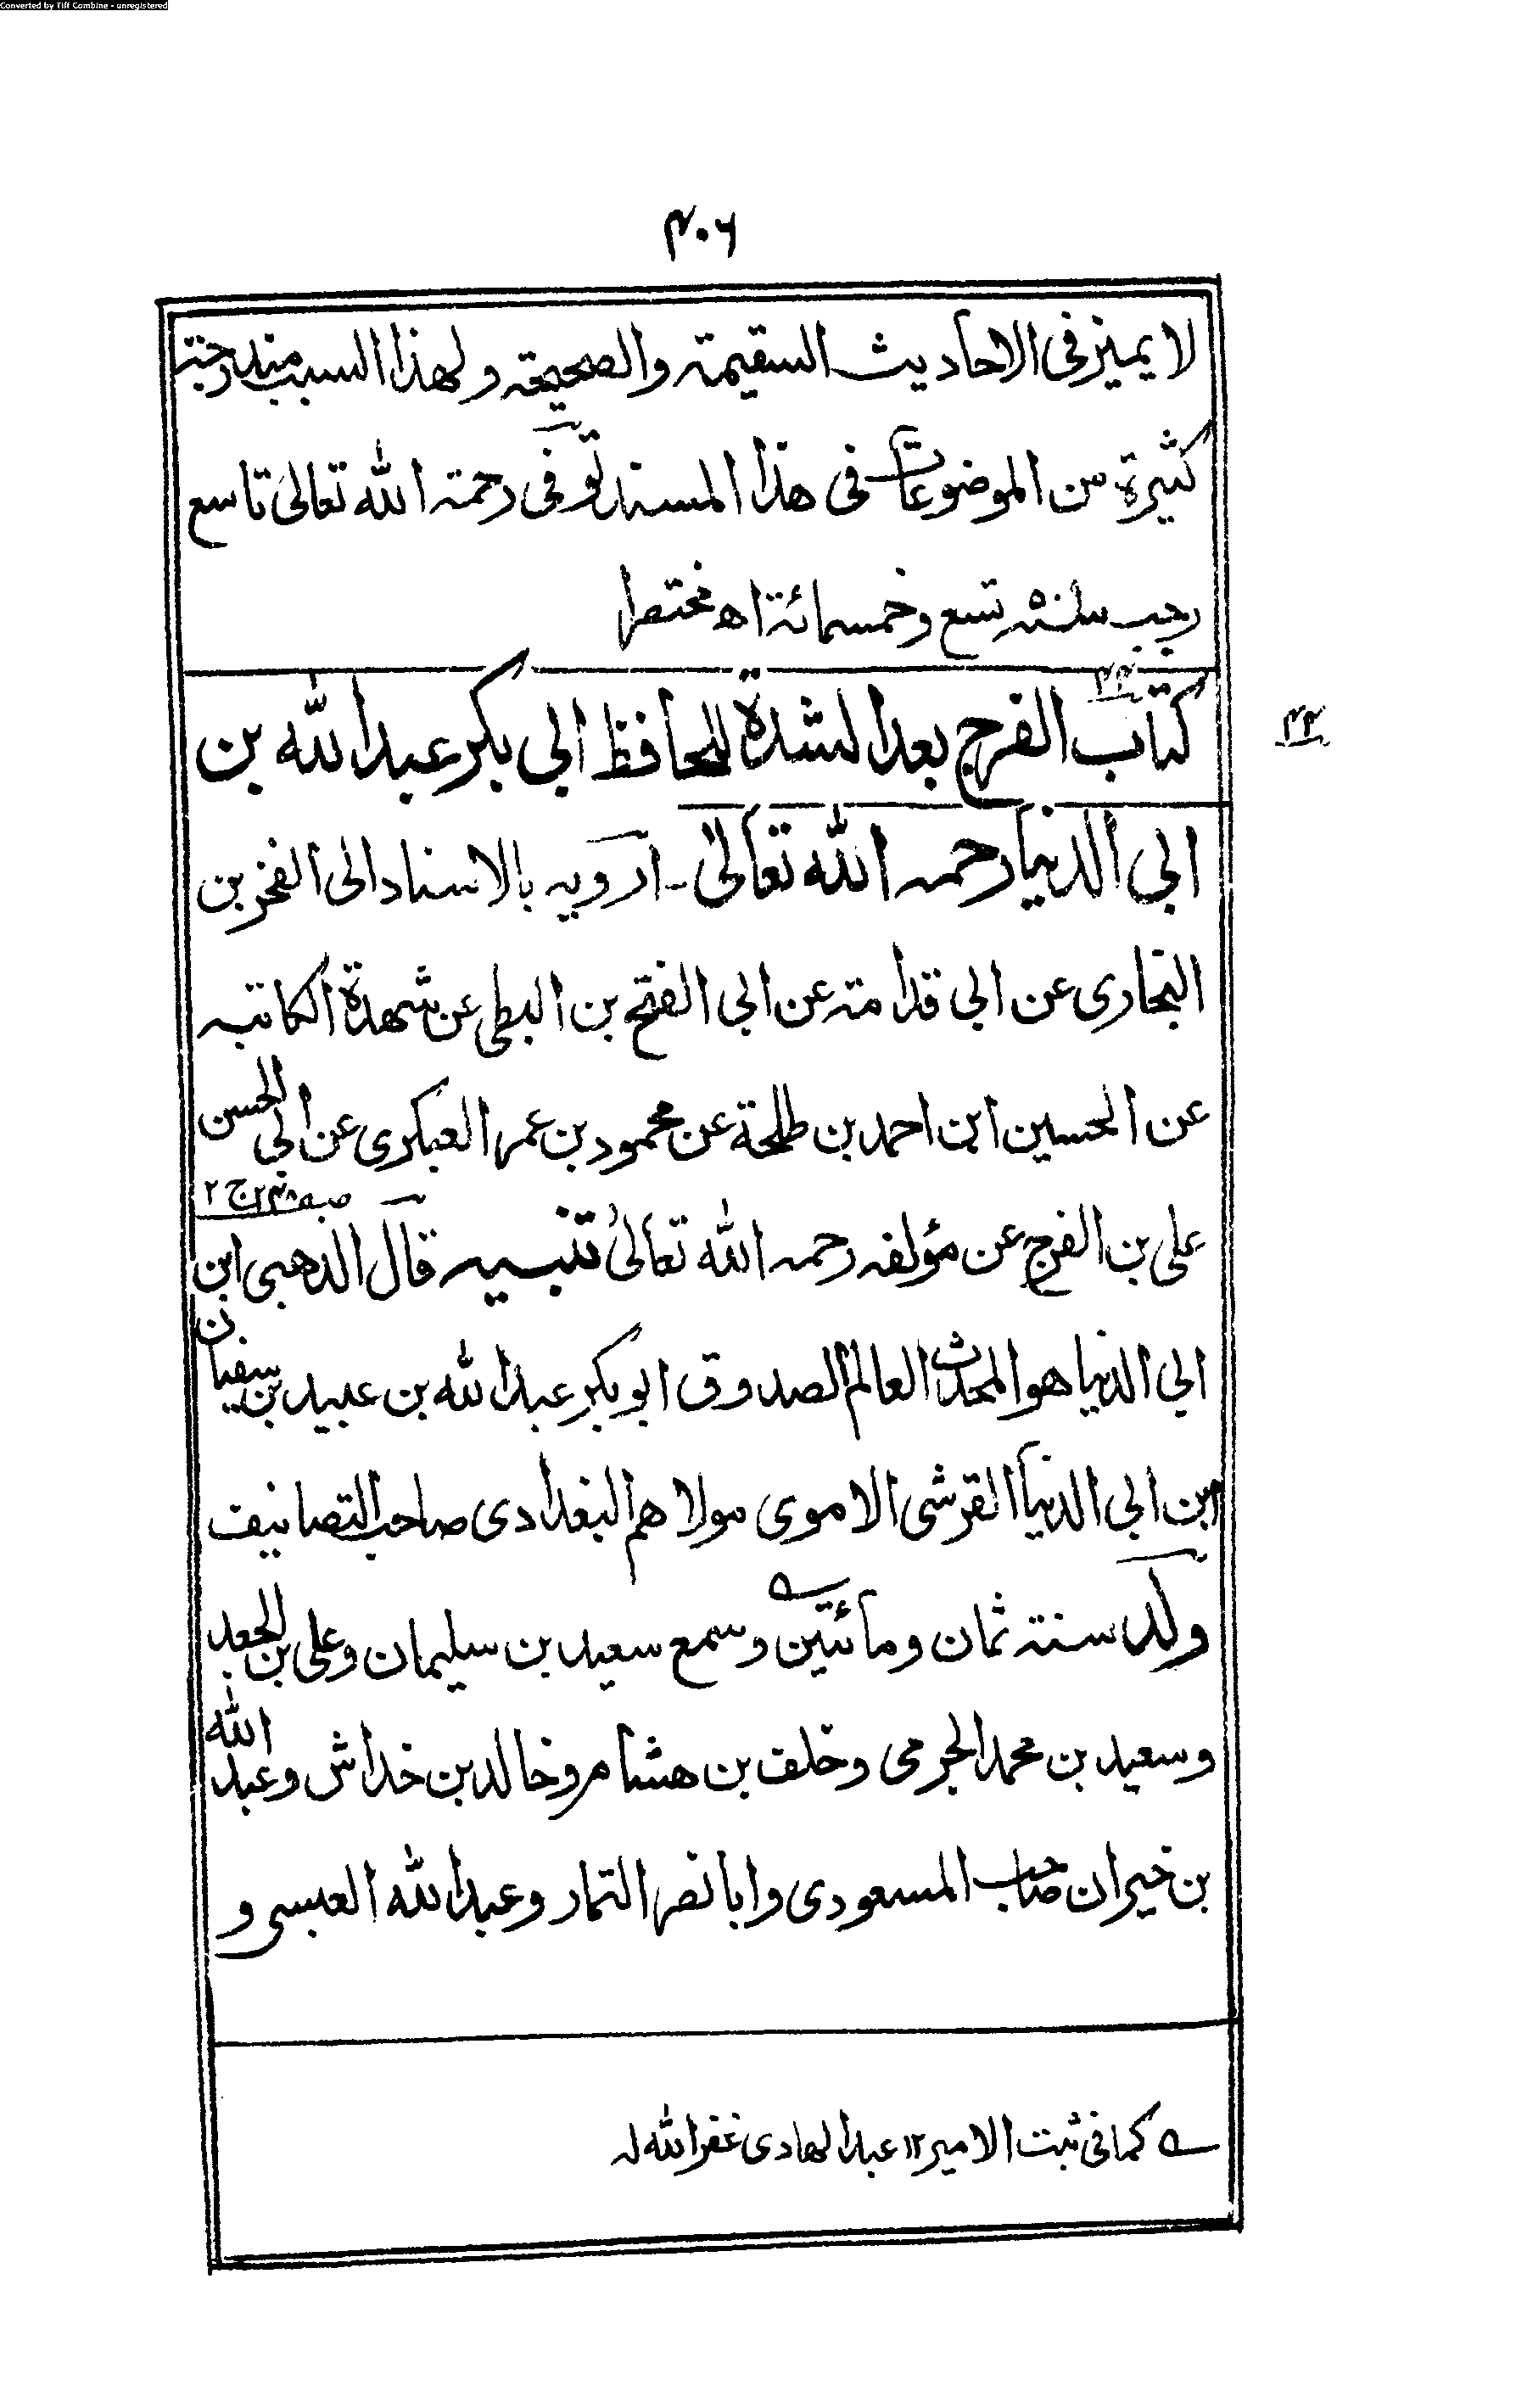 Converted by Tiff Combine - unregistered
۴۰۶
لا يميز فى الاحاديث السقيمة والصحيحة ولهذا السبب مندرجة
كثيرة من الموضوعات فى هذا المسند توفى رحمة الله تعالى تاسع
رجب سنة تسع وخمسمائة اھ مختصرا
۴۳
۴۳
كتاب الفرج بعد الشدة للحافظ ابى بكر عبد الله بن
ابى الدنيا رحمه الله تعالى - آرويه بالاسناد الى الفخر بن
البخارى عن ابى قدامة عن ابى الفتح بن البطى عن شهدة الكاتبه
عن الحسين ابن احمد بن طلحة عن محمود بن عمر العبكرى عن ابى الحسن
ج ۲
على بن الفرج عن مؤلفه رحمه الله تعالى تنبيه قال الذهبى ابن
ابى الدنيا هو المحدث العالم الصدوق ابو بكر عبد الله بن عبيد بن سفيان بن
ابن ابى الدنيا القرشى الاموى مولاهم البغدادى صاحب التصانيف
ولد سنة ثمان ومائتين وسمع سعيد بن سليمان وعلى بن الجعد
وسعيد بن محمد الجرمى وخلف بن هشام وخالد بن خداش وعبد الله
بن خيران صاحب المسعودى وابا نصر التمار وعبد الله العبسى و
ے كما فى ثبت الامير ۱۲ عبد الهادى غفر الله له